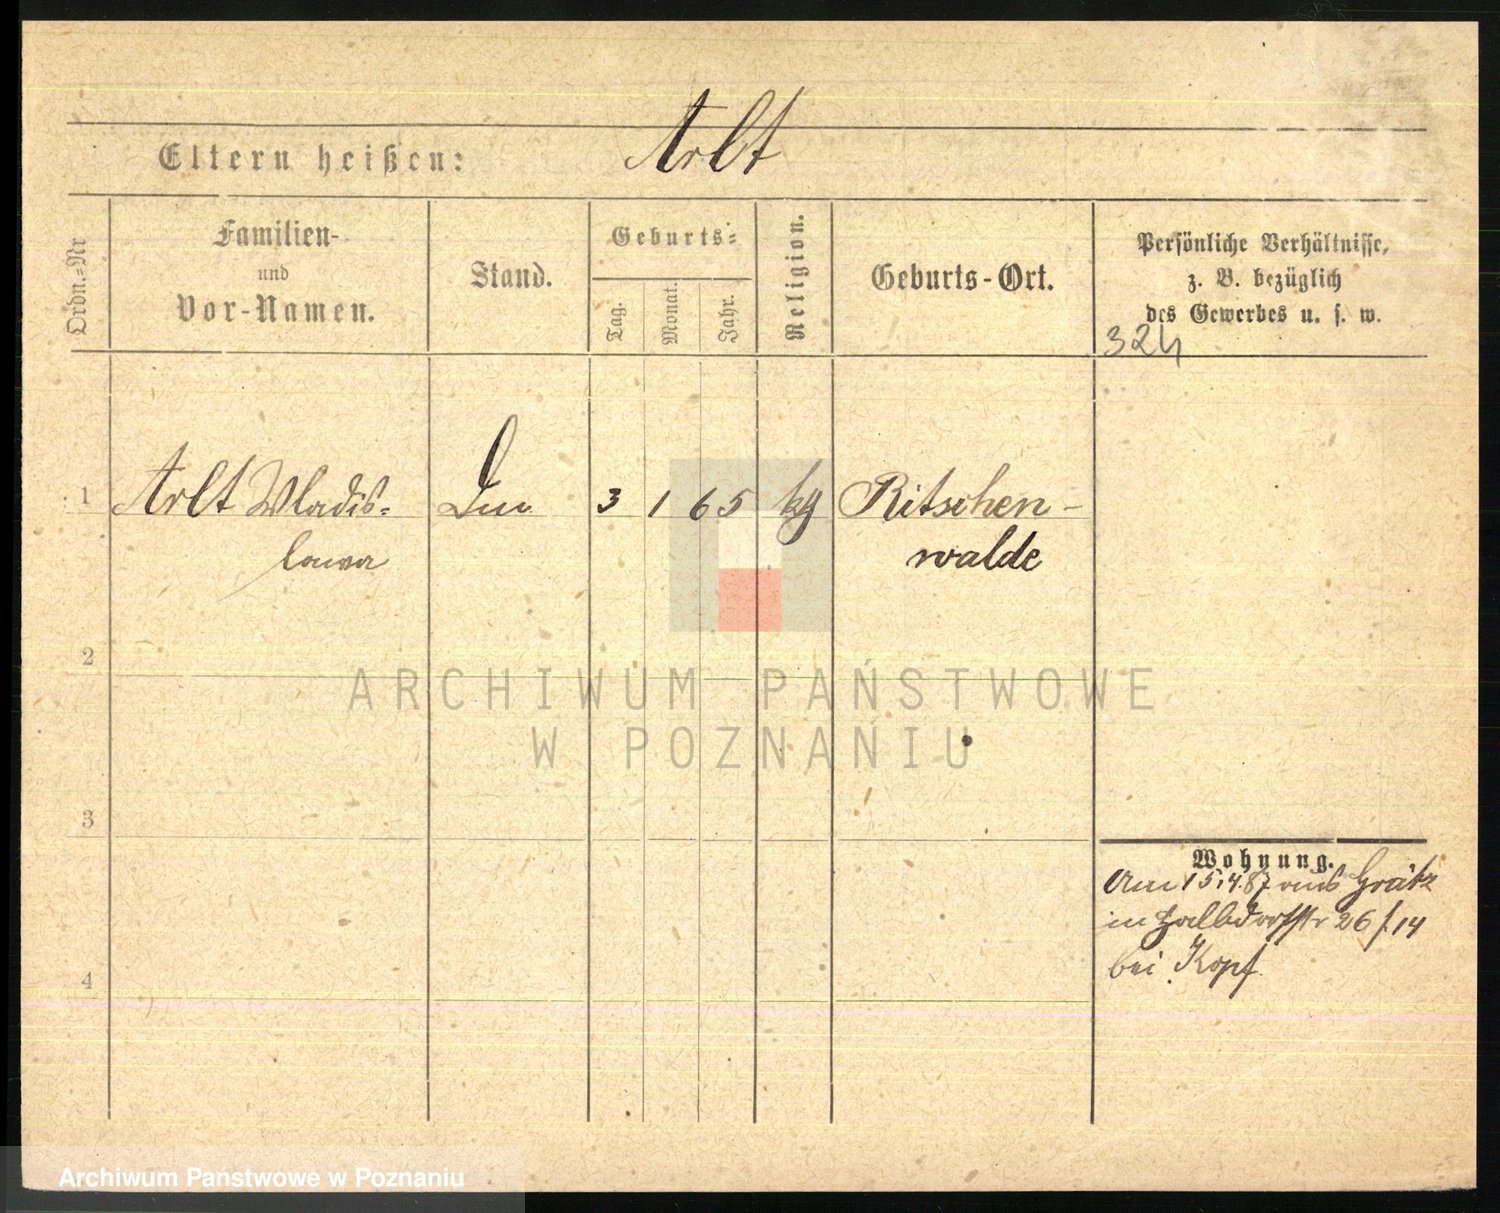 Arlt
Eltern heißen:
Ordn.=Nr
Familien-
und
Vor-Namen.
Stand.
Geburts=
Tag.
Monat.
Jahr.
Religion.
Geburts-Ort.
Persönliche Verhältnisse,
z. B. bezüglich
des Gewerbes u. s. w.
324
1 Arlt Wladis= 3 1 65 Ritschen-
lawa walde
2
ARCHIWUM PAŃSTWOWE
W POZNANIU
3
Wohnung.
Am 15.4.87 aus Grätz
in 26 14
bei Kopf
4
Archiwum Państwowe w Poznaniu